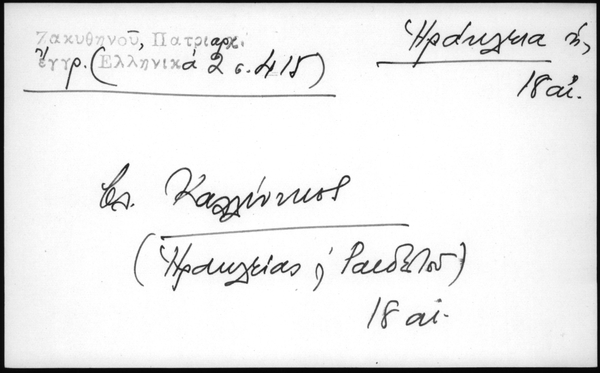 Ζακυθηνοῦ, Πατριαρχ.
ἔγγρ. (Ἑλληνικά 2 σ. 415)
Ἡράκλεια ἡ,
18 αἰ.
βλ. Καλλίνικος
(Ἡρακλείας ἢ Ραιδεστοῦ)
18 αἰ.